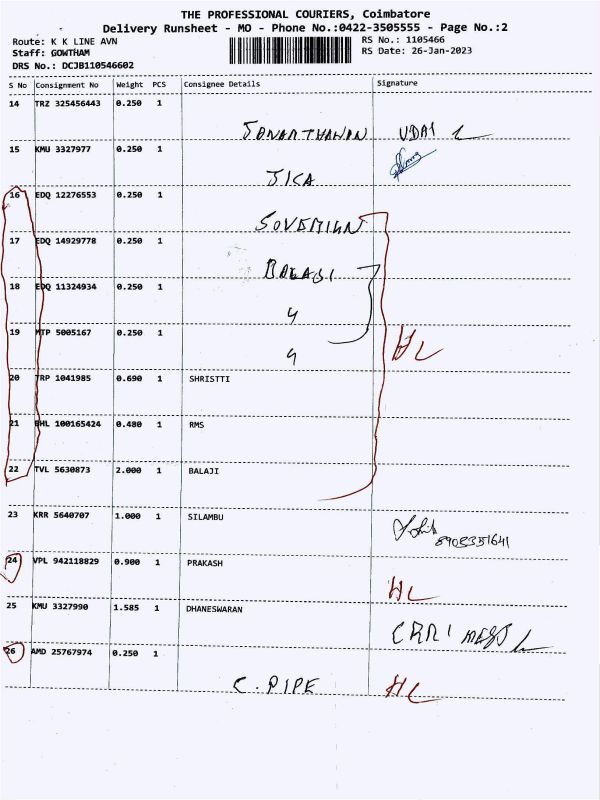 THE PROFESSIONAL COURIERS, Coimbatore
Delivery Runsheet - MO - Phone No.:0422-3505555 - Page No.:2
Route: K K LINE AVN
RS No.: 1105466
Staff: GOWTHAM
RS Date: 26-Jan-2023
DRS No.: DCJB110546602
S No Consignment No Weight PCS Consignee Details Signature
14 TRZ 325456443 0.250 1
JANARTHANAN UDAI
15 KMU 3327977 0.250 1
JICA
16 EDQ 12276553 0.250 1
17 EDQ 14929778 0.250 1
BALAJI
18 EDQ 11324934 0.250 1
19 MTP 5005167 0.250 1
HL
20 TRP 1041985 0.690 1 SHRISTTI
21 BHL 100165424 0.480 1 RMS
22 TVL 5630873 2.000 1 BALAJI
23 KRR 5640707 1.000 1 SILAMBU
24 VPL 942118829 0.900 1 PRAKASH
HL
25 KMU 3327990 1.585 1 DHANESWARAN
26 AMD 25767974 0.250 1
C. PIPE HL